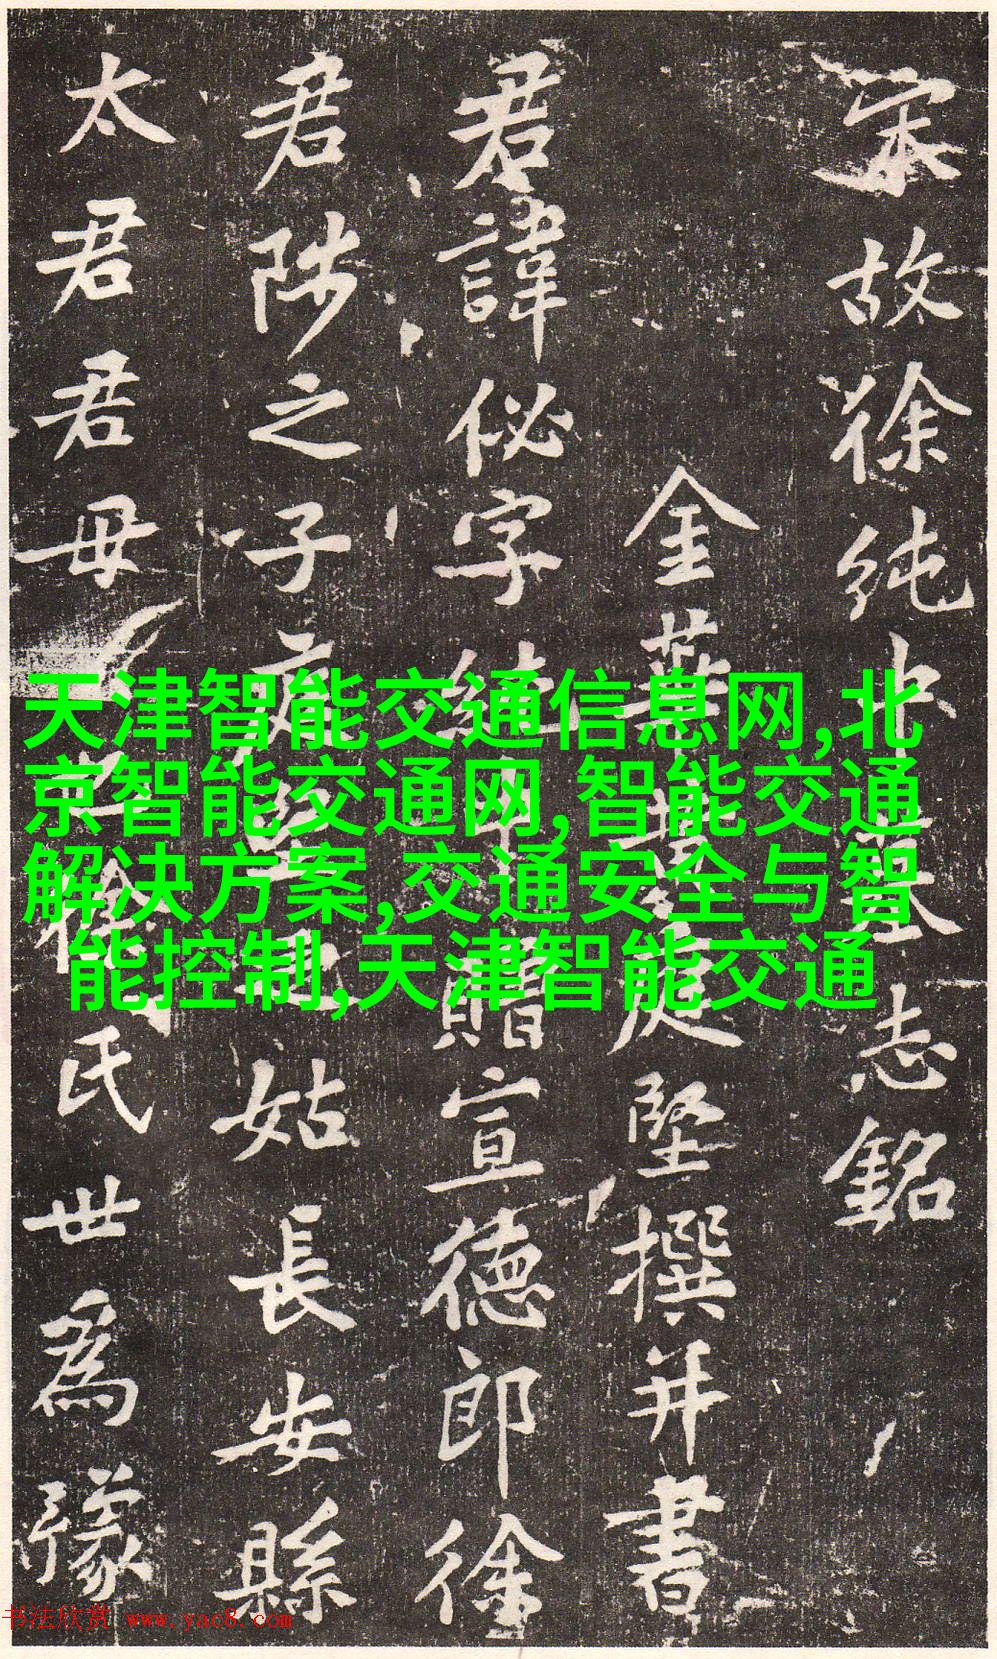 宋故徐纯中墓志銘
金華黄庭堅撰并書
君諱佖字純中贈宣德郎徐
君陟之子
姑長安縣
太君君母
氏世為豫
天津智能交通信息网,北
京智能交通网,智能交通
解决方案,交通安全与智
能控制,天津智能交通
书法欣赏 www.yac8.com